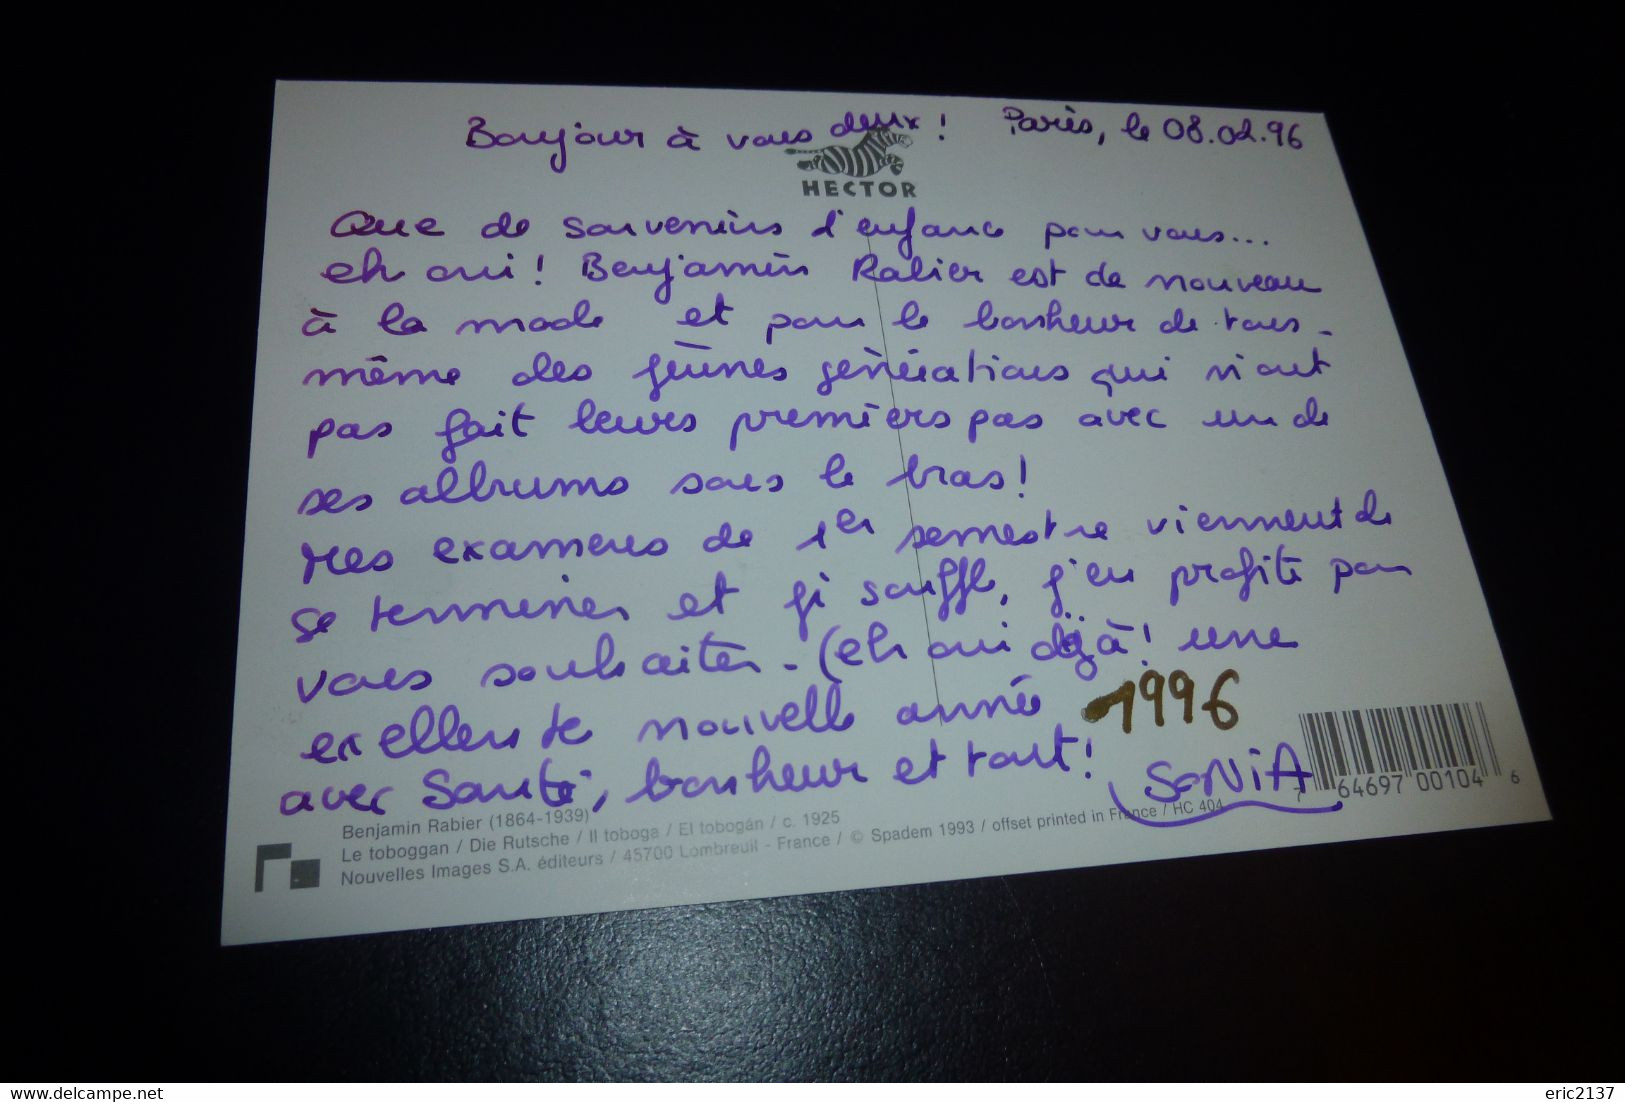 Bonjour à vous deux ! Paris, le 08.02.96
HECTOR
Que de souvenirs d'enfance pour vous...
eh oui ! Benjamin Rabier est de nouveau
à la mode et pour le bonheur de tous -
même des jeunes générations qui n'ont
pas fait leurs premiers pas avec un de
ses albums sous le bras !
Mes examens de 1er semestre viennent de
se terminer et je souffle, j'en profite pour
vous souhaiter - (eh oui déjà ! une
excellente nouvelle année 1996
avec Santé, bonheur et tout !
SONIA
Benjamin Rabier (1864-1939)
Le toboggan / Die Rutsche / Il toboga / El tobogán / c. 1925
Nouvelles Images S.A. éditeurs / 45700 Lombreuil - France / © Spadem 1993 / offset printed in France / HC 404
7 64697 00104 6
www.delcampe.net
eric2137